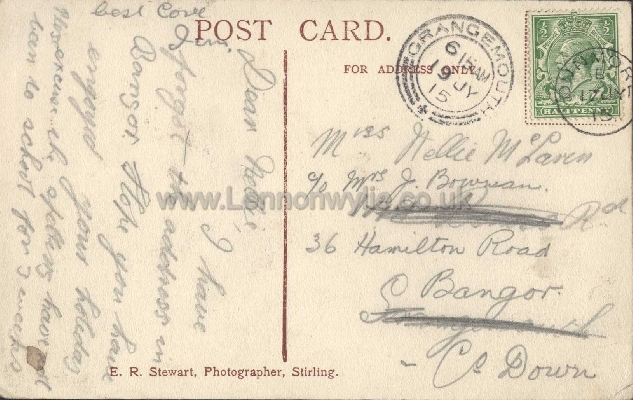 POST CARD.
FOR ADDRESS ONLY.
GRANGEMOUTH
6 15 AM
19 JY
15
HALFPENNY
best Love
Jim.
Dear Nellie, I have
forgot the address in
Bangor. Hope you have
enjoyed your holiday
have
to school for weeks
Miss Nellie McLaren
c/o Mrs J. Bowman.
Rd
36 Hamilton Road
Bangor.
Co Down
www.Lennonwylie.co.uk
E. R. Stewart, Photographer, Stirling.